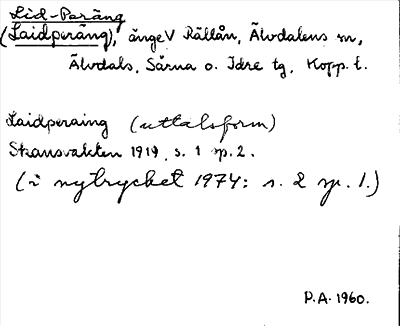 Lid-Peräng
(Laidperäng), änge V Rällån, Älvdalens sn,
Älvdals, Särna o. Idre tg, Kopp. l.
Laidperaing (uttalsform)
Skansvakten 1919, s. 1 sp. 2.
(i nytrycket 1974: s. 2 sp. 1.)
P.A. 1960.